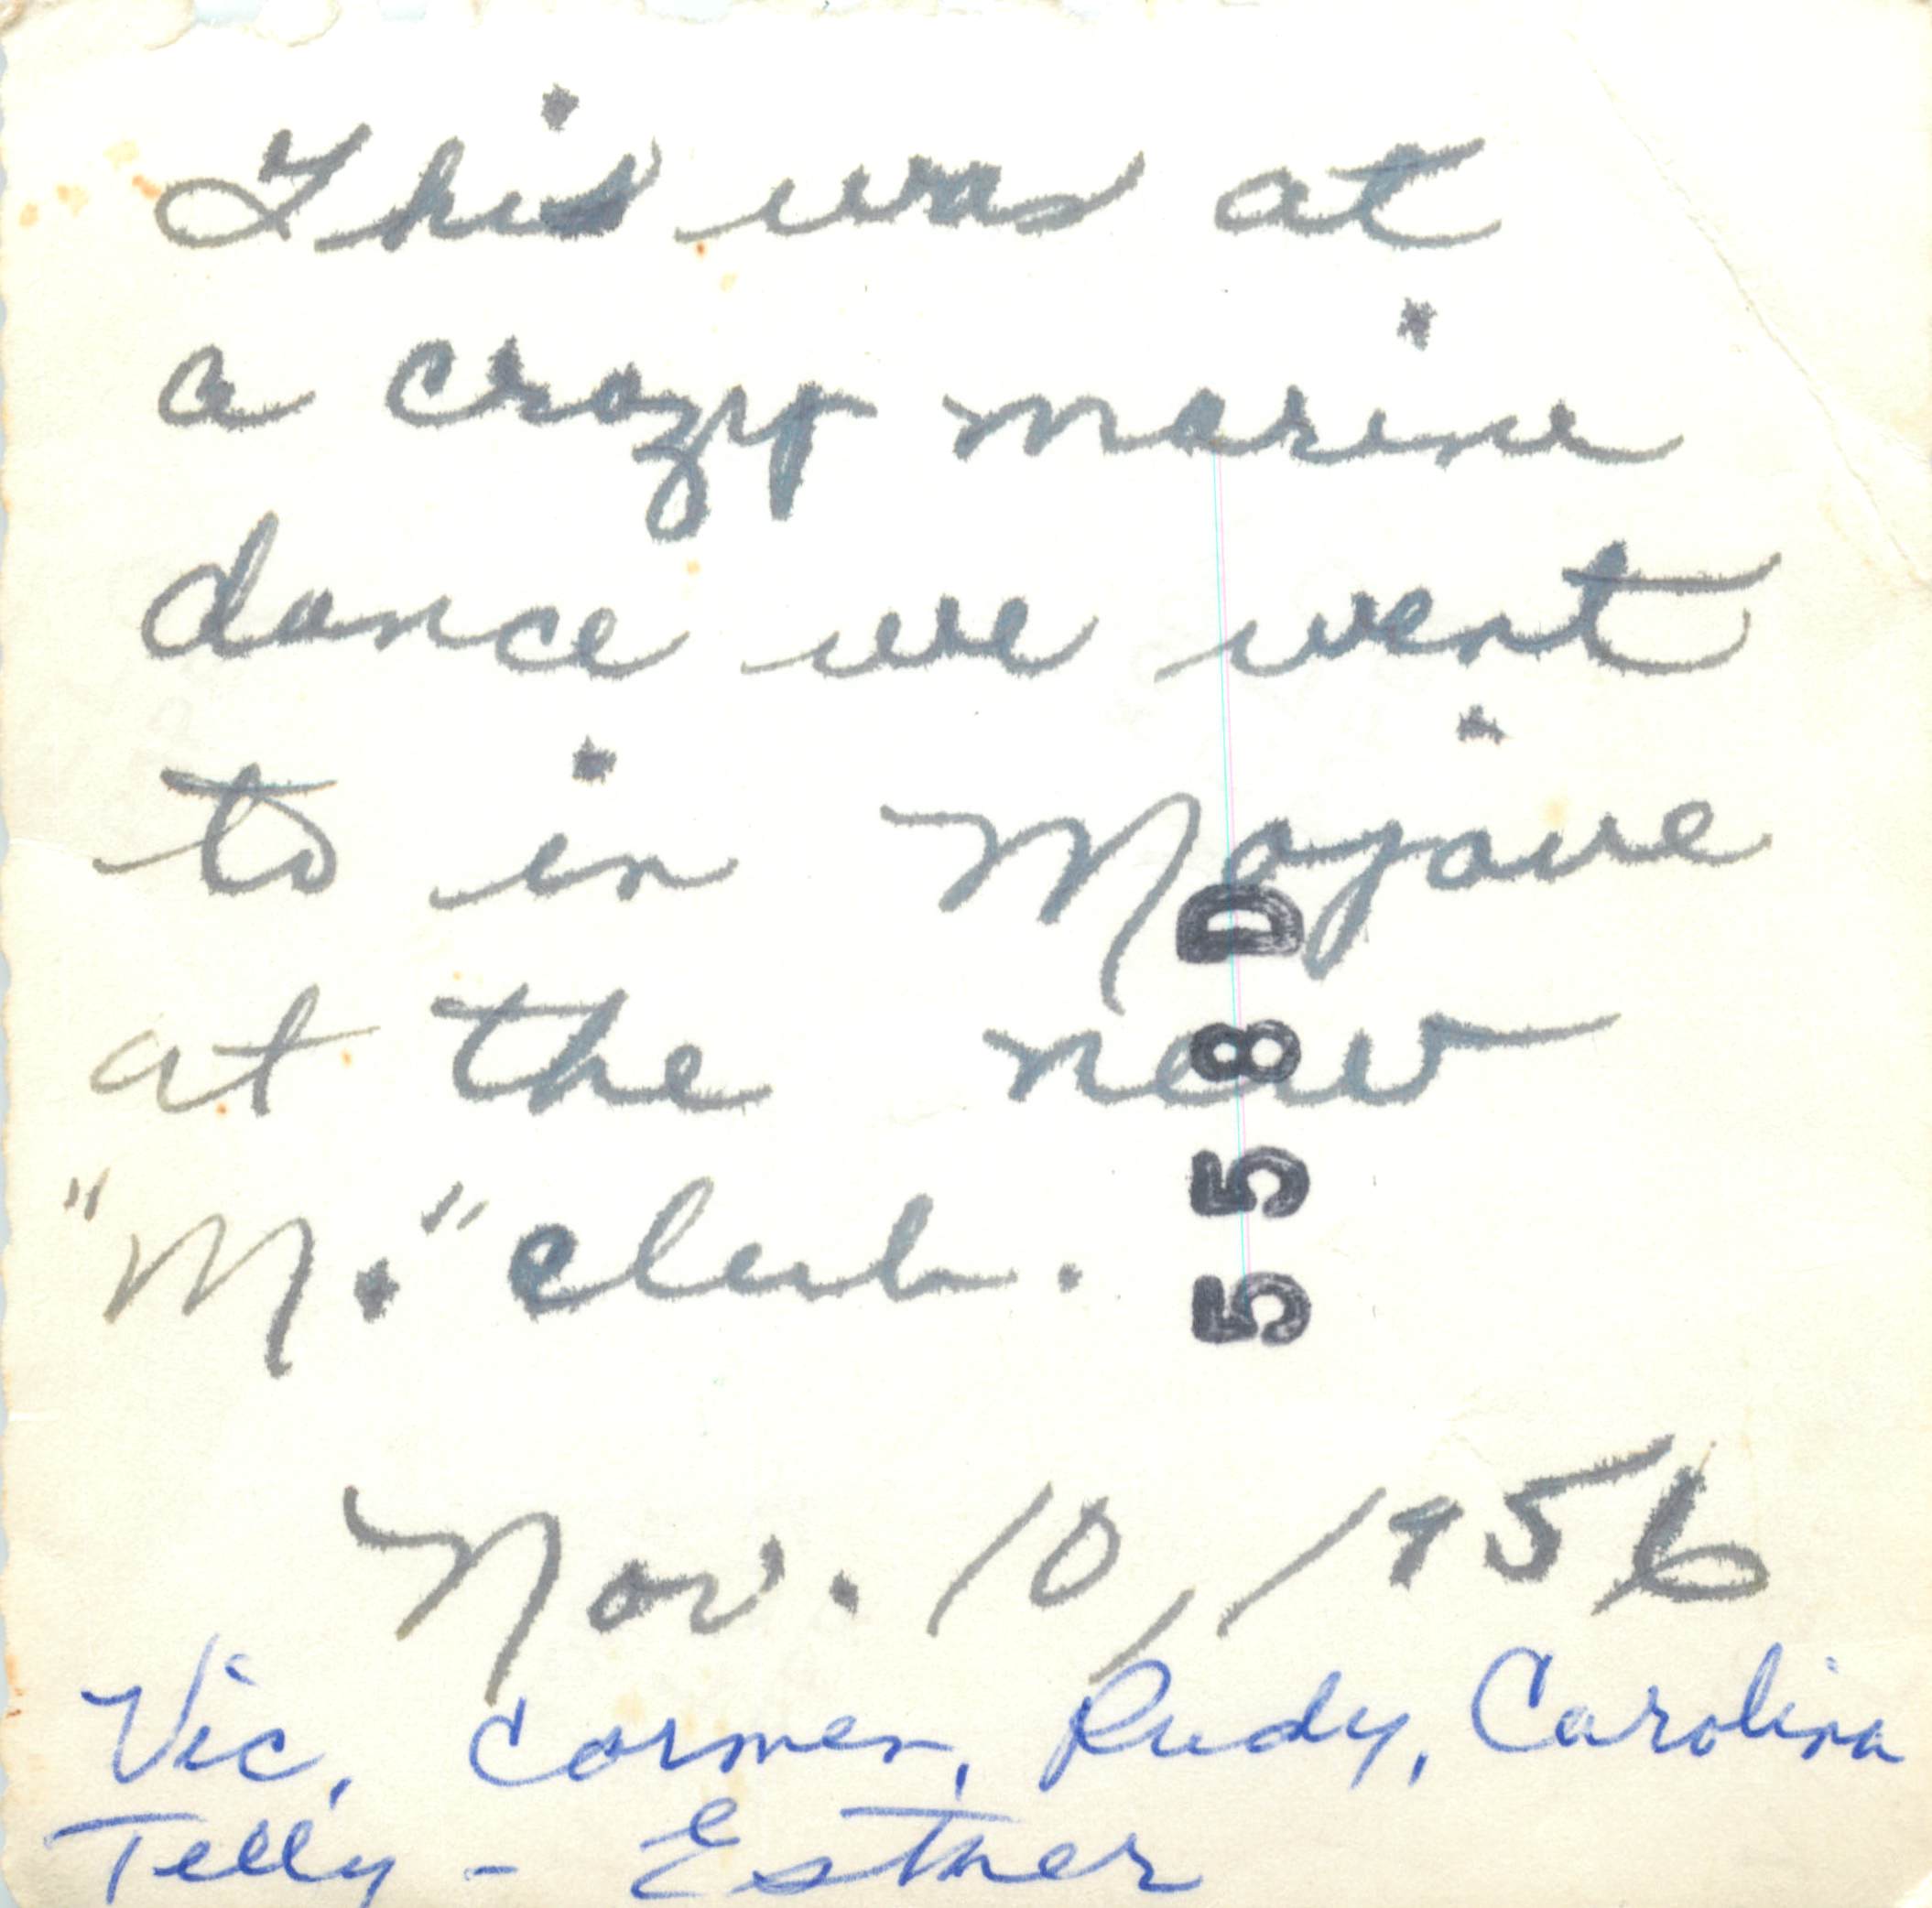 This was at
a crazy marine
dance we went
to in Mojave
at the new
"M." club.
Nov. 10, 1956
Vic, Carmen, Rudy, Carolina
Telly - Esther
558D